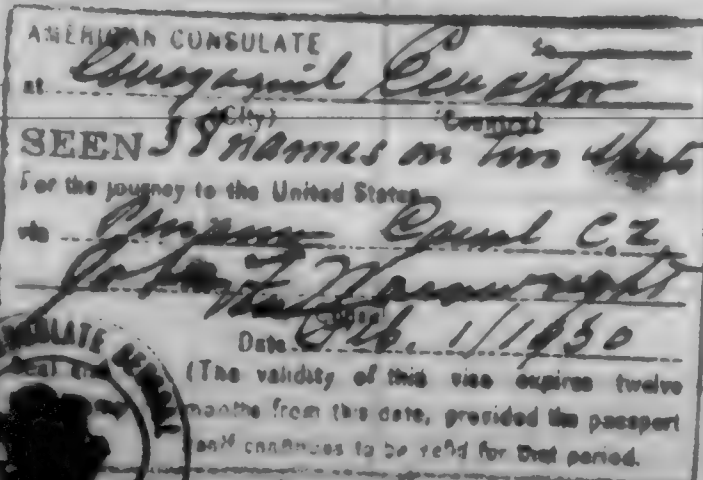 AMERICAN CONSULATE No
at Guayaquil Ecuador
(City) (Country)
SEEN 38 names on two sheets
For the journey to the United States
via Canal C.Z.
Wainwright
Date Feb. 1/1930
CONSULATE
(The validity of this vise expires twelve
months from this date, provided the passport
itself continues to be valid for that period.